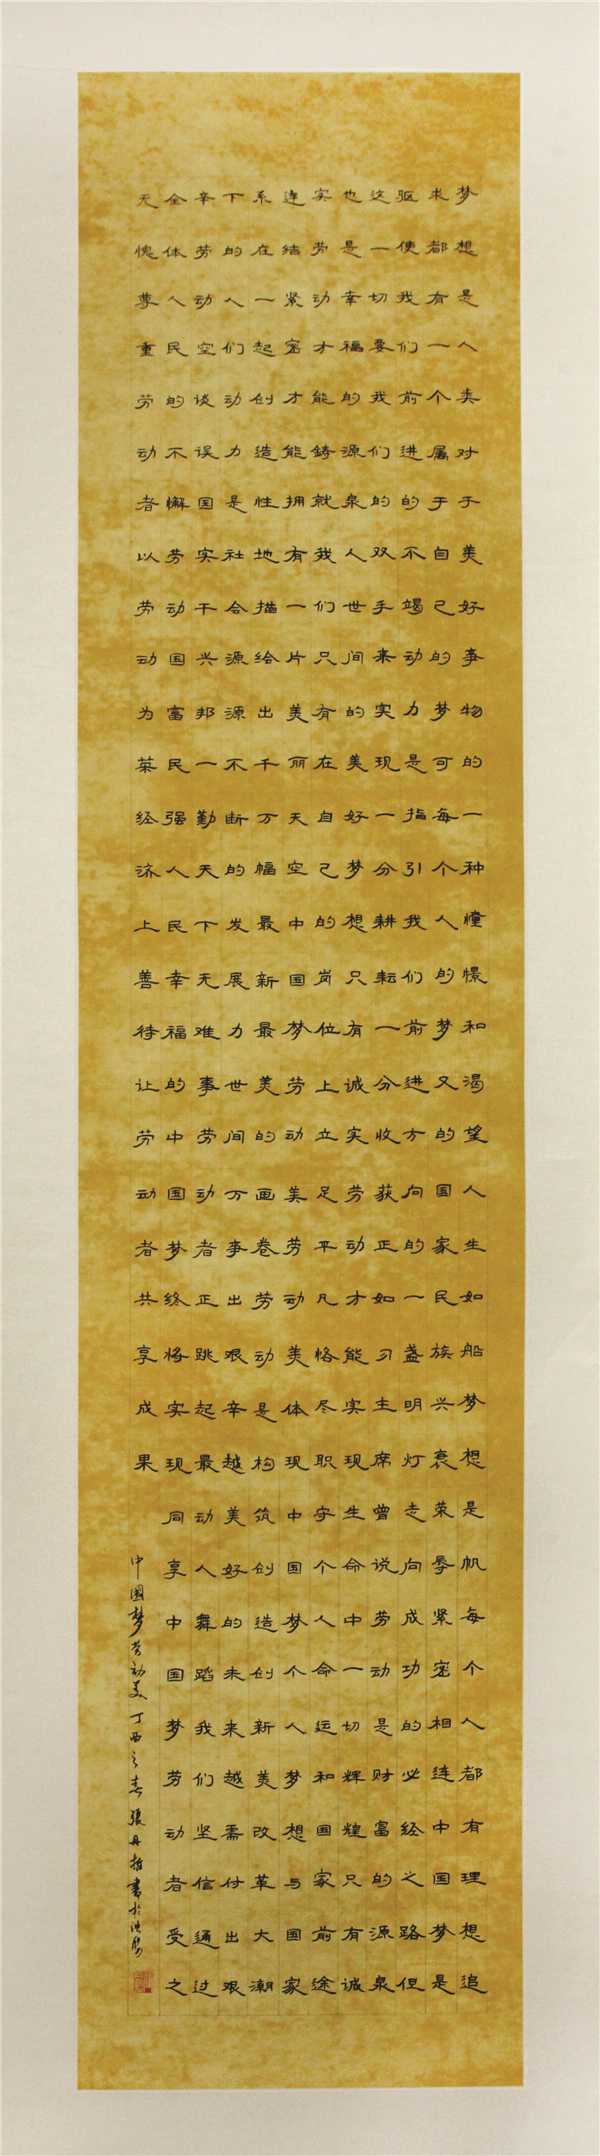 梦想是人类对于美好事物的一种憧憬和渴望人生如船梦想是帆每个人都有理想追
求都有一个属于自己的梦可每个人的梦又的国家民族兴衰荣辱紧密相连中国梦是
驱使我们前进的不竭动力是指引我们前进方向的一盏明灯走向成功的必经之路但
这一切要我们的双手来实现一分耕耘一分收获正如习主席曾说劳动是财富的源泉
也是幸福的源泉人世间的美好梦想只有诚实劳动才能实现生命中一切辉煌只有诚
实劳动才能铸就我们只有在自己的岗位上立足平凡恪尽职守个人命运和国家前途
连结紧密才能拥有一片美丽天空中国梦劳动美劳动美体现中国梦个人梦想与国家
系在一起创造性地描绘出千万幅最新最美的画卷劳动是构筑创造创新美改革大潮
下的人们动力是社会源源不断的发展力世间万事出艰辛越美好的未来越需付出艰
辛劳动空谈误国实干兴邦一勤天下无难事劳动者正跳起最动人舞蹈我们坚信通过
全体人民的不懈劳动国富民强人民幸福的中国梦终将实现同享中国梦劳动者受之
无愧尊重劳动者以劳动为荣经济上善待让劳动者共享成果
中國梦劳动美丁酉之春張丹哲書於